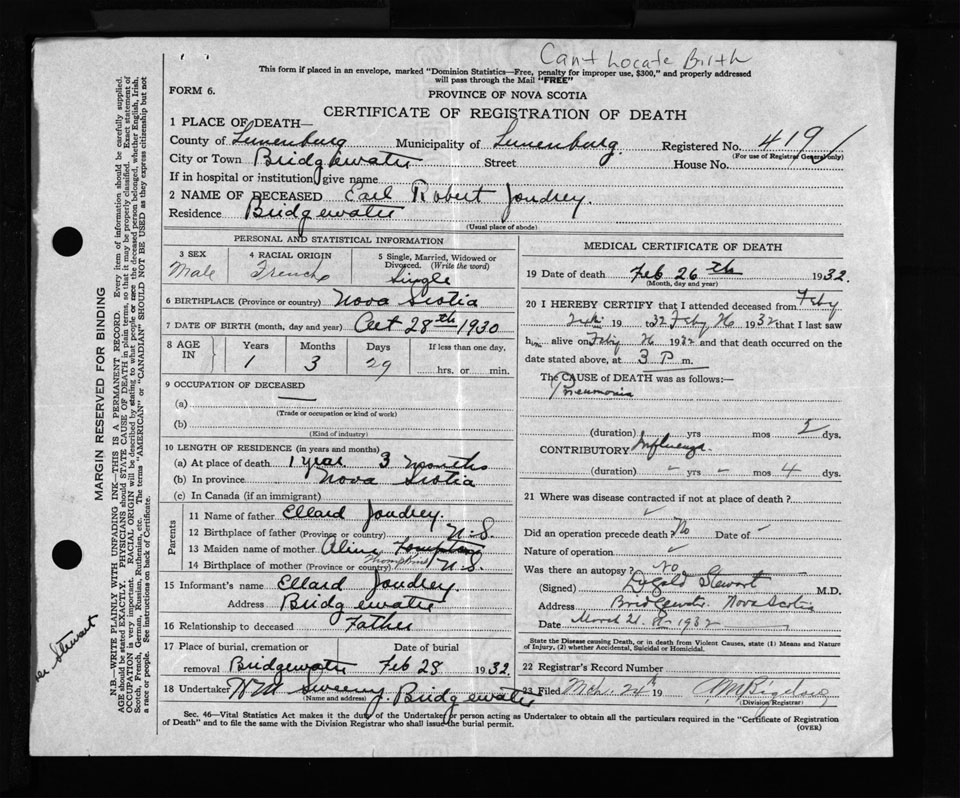 Cant Locate Birth
This form if placed in an envelope, marked "Dominion Statistics—Free, penalty for improper use, $300," and properly addressed
will pass through the Mail "FREE"
FORM 6.
PROVINCE OF NOVA SCOTIA
CERTIFICATE OF REGISTRATION OF DEATH
1 PLACE OF DEATH—
County of Lunenburg Municipality of Lunenburg. Registered No. 419
(For use of Registrar General only)
City or Town Bridgewater Street House No.
If in hospital or institution, give name
2 NAME OF DECEASED Earl Robert Joudrey.
Residence Bridgewater
(Usual place of abode)
PERSONAL AND STATISTICAL INFORMATION
3 SEX 4 RACIAL ORIGIN 5 Single, Married, Widowed or Divorced. (Write the word)
Male French Single
6 BIRTHPLACE (Province or country) Nova Scotia
7 DATE OF BIRTH (month, day and year) Oct 28th 1930
8 AGE IN Years Months Days If less than one day,
1 3 29 hrs. or min.
9 OCCUPATION OF DECEASED
(a) —
(Trade or occupation or kind of work)
(b)
(Kind of industry)
10 LENGTH OF RESIDENCE (in years and months)
(a) At place of death 1 year 3 months
(b) In province Nova Scotia
(c) In Canada (if an immigrant)
Parents
11 Name of father Ellard Joudrey.
12 Birthplace of father (Province or country) N.S.
13 Maiden name of mother
Thompson
14 Birthplace of mother (Province or country) N.S.
15 Informant's name Ellard Joudrey.
Address Bridgewater
16 Relationship to deceased Father
17 Place of burial, cremation or Date of burial
removal Bridgewater Feb 28 1932.
18 Undertaker Wm Sweeny. Bridgewater
(Name and address)
MEDICAL CERTIFICATE OF DEATH
19 Date of death Feb 26th 1932.
(Month, day and year)
20 I HEREBY CERTIFY that I attended deceased from Feby
19 32 to Feby 26 1932 that I last saw
h alive on Feby 26 1932 and that death occurred on the
date stated above, at 3 P m.
The CAUSE of DEATH was as follows:—
Pneumonia
(duration) yrs mos 5 dys.
CONTRIBUTORY Influenza.
(duration) yrs mos 4 dys.
21 Where was disease contracted if not at place of death?
Did an operation precede death? No Date of
Nature of operation
Was there an autopsy? No
(Signed) Stewart M.D.
Address Bridgewater. Nova Scotia
Date March 21. 1932
State the Disease causing Death, or in death from Violent Causes, state (1) Means and Nature
of Injury, (2) whether Accidental, Suicidal or Homicidal.
22 Registrar's Record Number
23 Filed Mch. 24 19
(Division Registrar)
Sec. 46—Vital Statistics Act makes it the duty of the Undertaker or person acting as Undertaker to obtain all the particulars required in the "Certificate of Registration
of Death" and to file the same with the Division Registrar who shall issue the burial permit.
(OVER)
MARGIN RESERVED FOR BINDING
N.B.—WRITE PLAINLY WITH UNFADING INK—THIS IS A PERMANENT RECORD. Every item of information should be carefully supplied.
AGE should be stated EXACTLY. PHYSICIANS should STATE CAUSE OF DEATH in plain terms, so that it may be properly classified. Exact statement of
OCCUPATION is very important. RACIAL ORIGIN will be described by stating to what people or race the deceased person belonged, whether English, Irish,
Scotch, French, German, Russian, Ruthenian, etc. The terms "AMERICAN" or "CANADIAN" SHOULD NOT BE USED as they express citizenship but not
a race or people. See instructions on back of Certificate.
Stewart